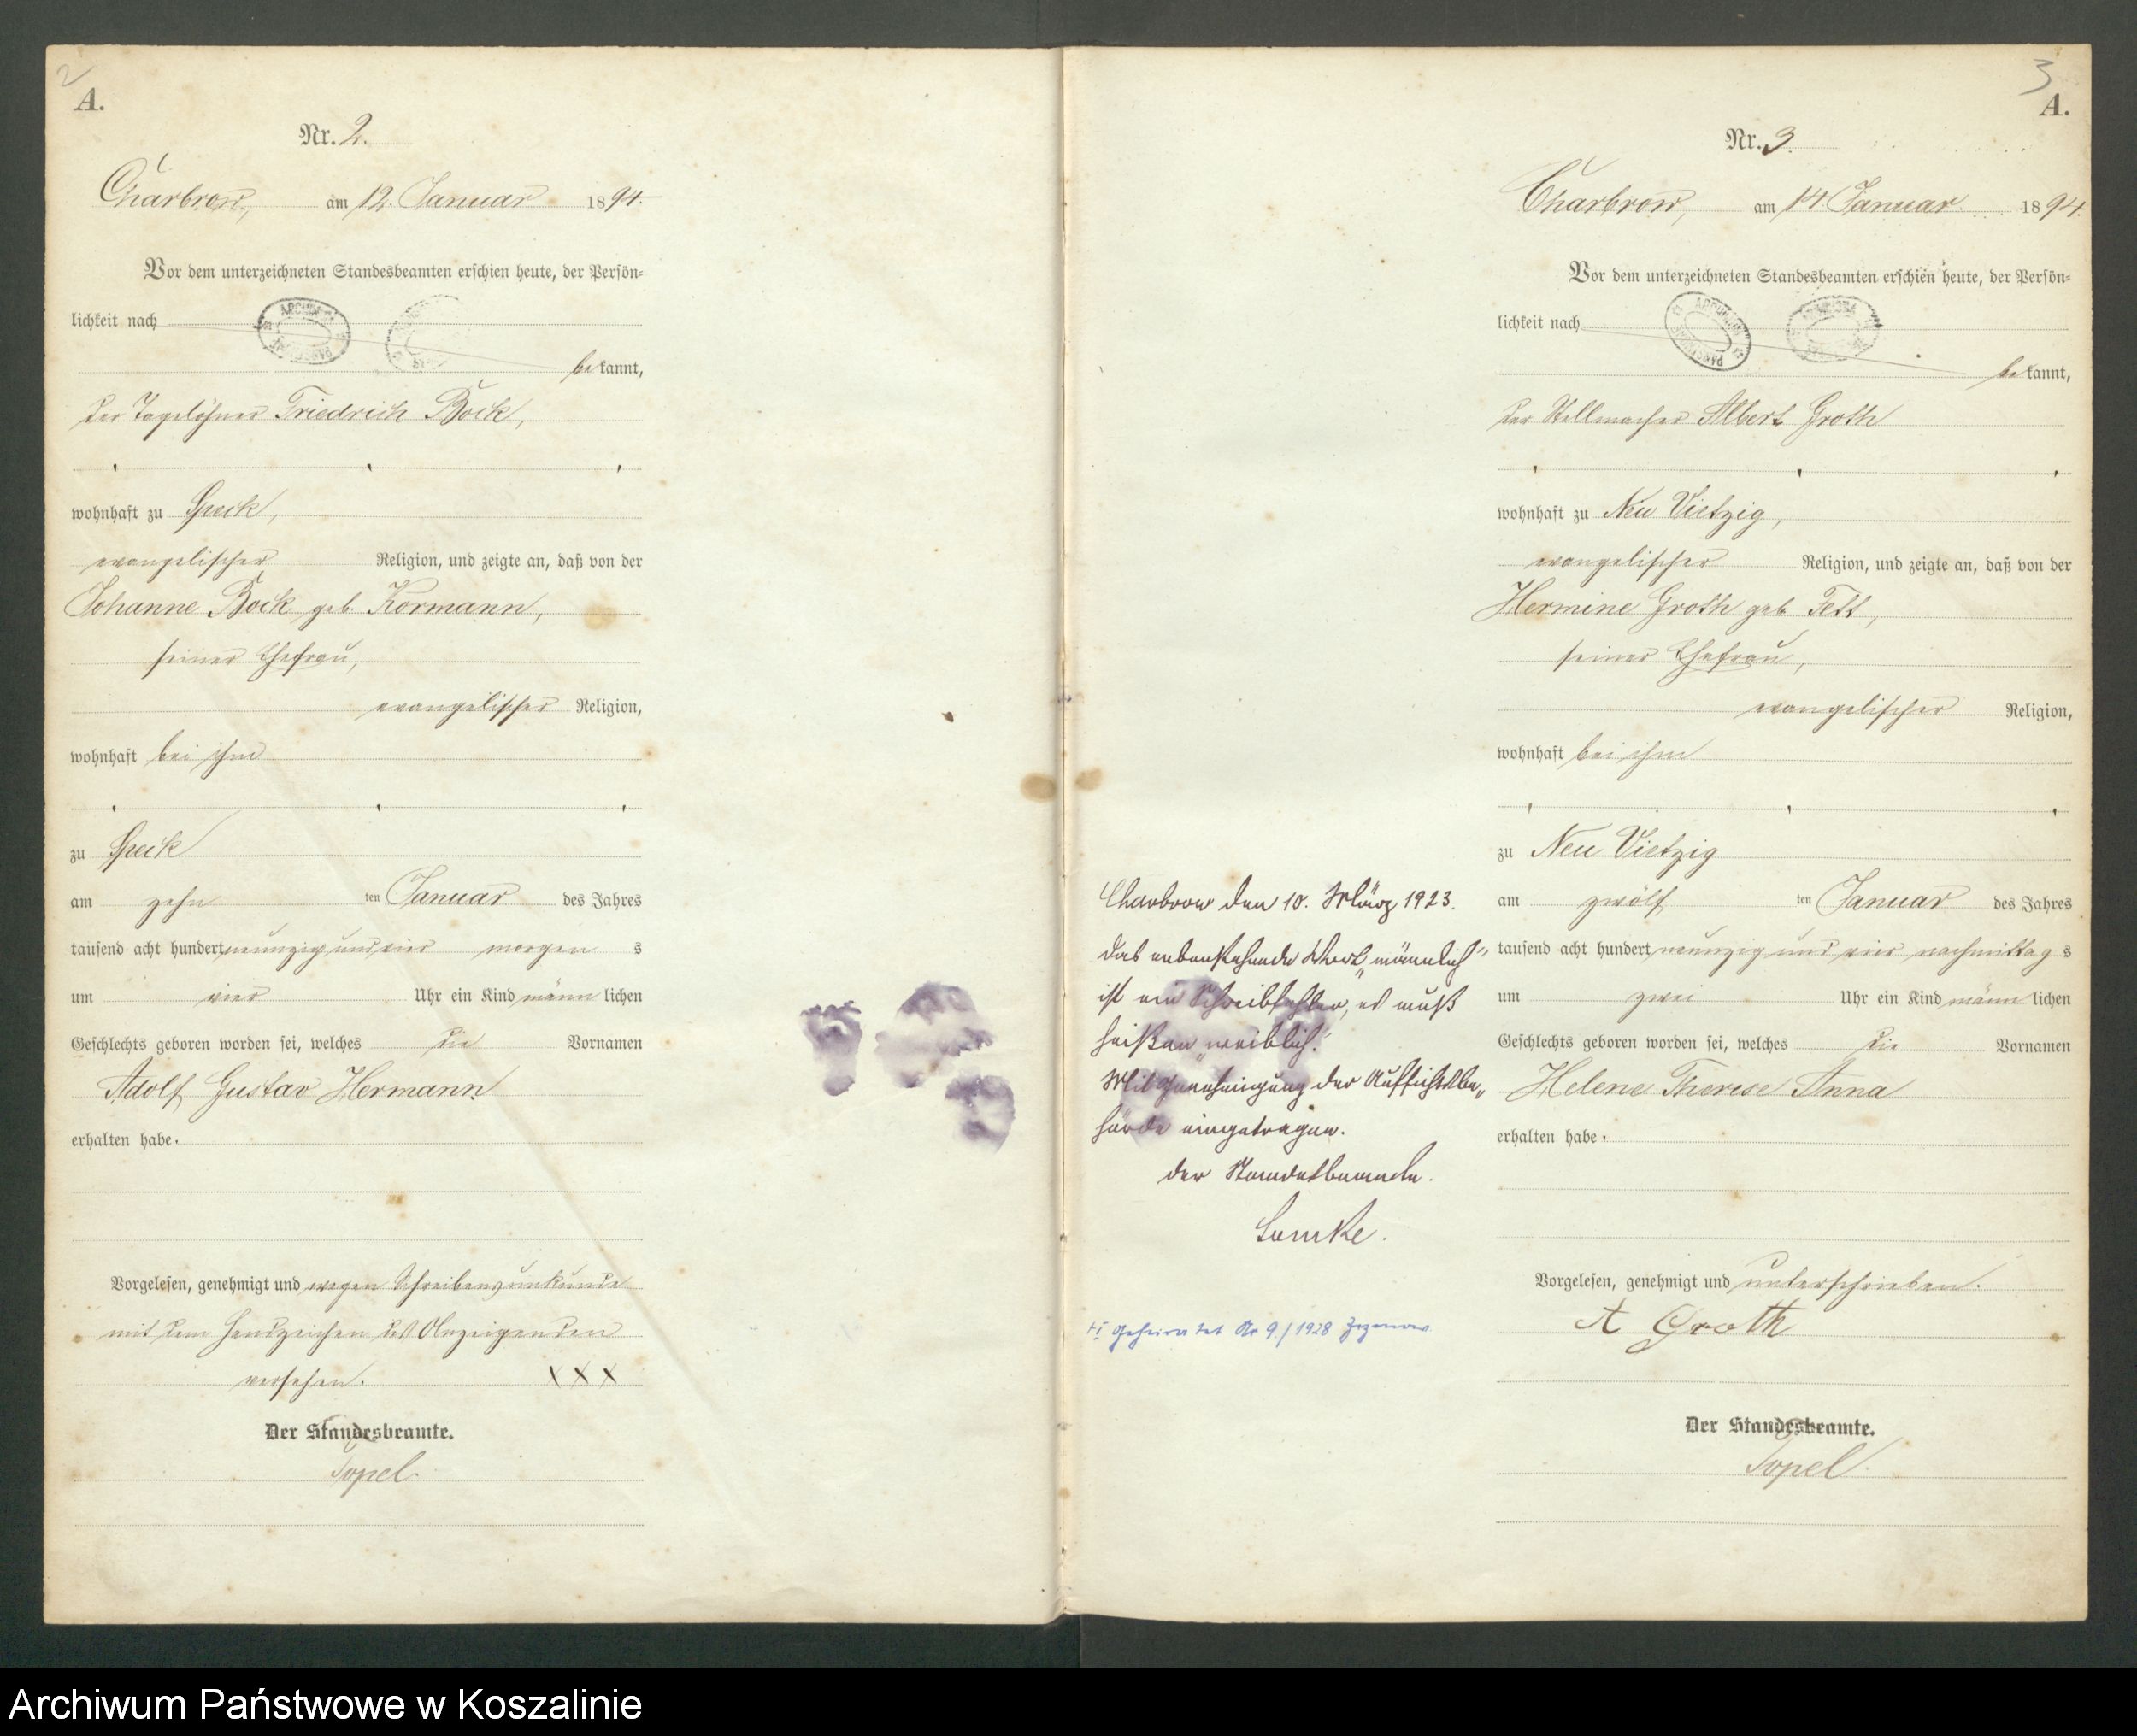 2
A.
Nr. 2.
Charbrow, am 12. Januar 1894.
Vor dem unterzeichneten Standesbeamten erschien heute, der Persön=
lichkeit nach
bekannt,
der Tagelöhner Friedrich Bock,
wohnhaft zu Speck,
evangelischer Religion, und zeigte an, daß von der
Johanne Bock geb. Kormann,
seiner Ehefrau,
evangelischer Religion,
wohnhaft bei ihm
zu Speck
am zehn ten Januar des Jahres
tausend acht hundert neunzig und vier morgen s
um vier Uhr ein Kind männlichen
Geschlechts geboren worden sei, welches die Vornamen
Adolf Gustav Hermann
erhalten habe.
Vorgelesen, genehmigt und wegen Schreibensunkunde
mit dem Handzeichen des Anzeigenden
versehen. XXX
Der Standesbeamte.
Topel.
Charbrow den 10. März 1923.
Das nebenstehende Wort „männlich"
ist ein Schreibfehler, es muß
heißen „weiblich."
Mit Genehmigung der Aufsichtsbe„
hörde eingetragen.
Der Standesbeamte.
Lemke.
geheiratet Nr 9./1928 Zezenow
3
A.
Nr. 3.
Charbrow, am 14. Januar 1894.
Vor dem unterzeichneten Standesbeamten erschien heute, der Persön=
lichkeit nach
bekannt,
der Stellmacher Albert Groth
wohnhaft zu Neu Vietzig,
evangelischer Religion, und zeigte an, daß von der
Hermine Groth geb Tett,
seiner Ehefrau,
evangelischer Religion,
wohnhaft bei ihm
zu Neu Vietzig
am zwölf ten Januar des Jahres
tausend acht hundert neunzig und vier nachmittag s
um zwei Uhr ein Kind männlichen
Geschlechts geboren worden sei, welches die Vornamen
Helene Therese Anna
erhalten habe.
Vorgelesen, genehmigt und unterschrieben.
A Groth
Der Standesbeamte.
Topel.
Archiwum Państwowe w Koszalinie